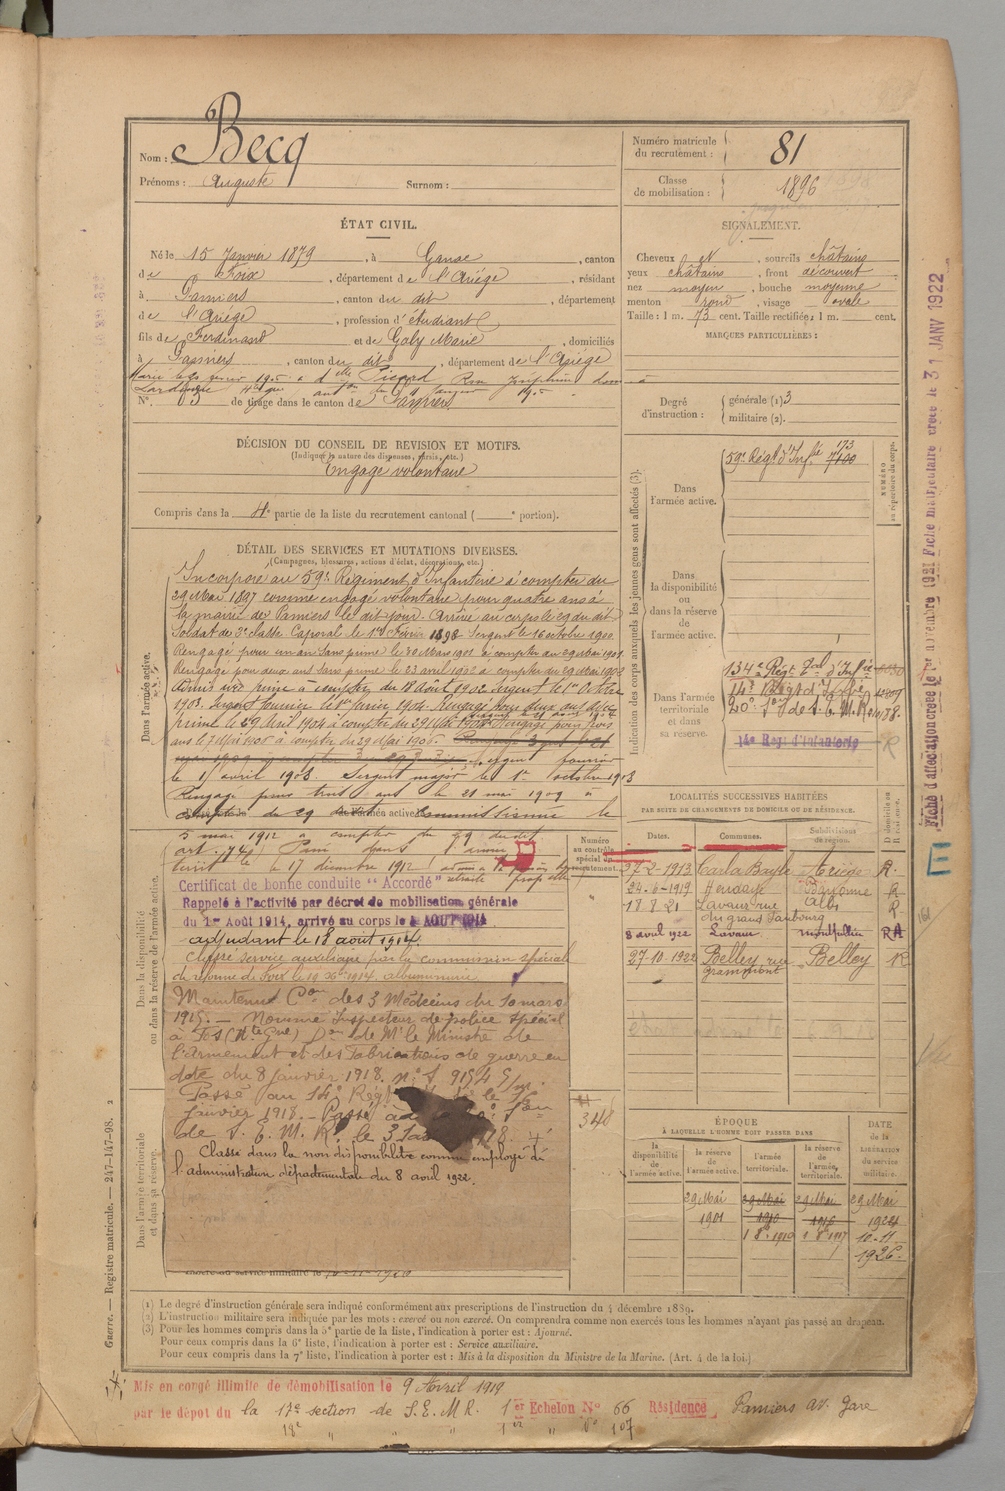 Nom : Becq
Prénoms : Auguste Surnom :
Numéro matricule du recrutement : 81
Classe de mobilisation : 1896
ÉTAT CIVIL.
Né le 15 Janvier 1879, à Ganac, canton
de Foix, département de l'Ariège, résidant
à Pamiers, canton du dit, département
de l'Ariège, profession d'étudiant
fils de Ferdinand et de Galy Marie, domiciliés
à Pamiers, canton du dit, département de l'Ariège
Marié le 20 février 1905 à dlle Picard
N° 3 de tirage dans le canton de Pamiers
SIGNALEMENT.
Cheveux et, sourcils châtains
yeux châtains, front découvert
nez moyen, bouche moyenne
menton rond, visage ovale
Taille : 1 m. 73 cent. Taille rectifiée : 1 m. cent.
MARQUES PARTICULIÈRES :
Degré d'instruction : générale (1) 3
militaire (2).
DÉCISION DU CONSEIL DE REVISION ET MOTIFS.
(Indiquer la nature des dispenses, sursis, etc.)
Engagé volontaire
Compris dans la 4e partie de la liste du recrutement cantonal ( e portion).
DÉTAIL DES SERVICES ET MUTATIONS DIVERSES.
(Campagnes, blessures, actions d'éclat, décorations, etc.)
Dans l'armée active.
Incorporé au 59e Régiment d'Infanterie à compter du
29 Mai 1897 comme engagé volontaire pour quatre ans à
la mairie de Pamiers le dit jour. Arrivé au corps le 29 du dit
Soldat de 2e classe Caporal le 1er Février 1898 Sergent le 16 octobre 1900.
Rengagé pour un an sans prime le 30 Mars 1901 à compter du 29 Mai 1901
Rengagé pour deux ans sans prime le 23 avril 1902 à compter du 29 Mai 1902
1903. Sergent fourrier le 1er Février 1904. Rengagé pour deux ans avec
prime le 29 Avril 1904 à compter du 29 Mai
ans le 7 Mai 1906 à compter du 29 Mai 1906.
sergent fourrier
le 1 avril 1908. Sergent major le 1er octobre 1908
Rengagé pour trois ans le 21 mai 1909 à
compter du 29 Commissionné le
5 mai 1912 à compter du 29 du dit
(art. 74) Passé dans l'armée
territle le 17 décembre 1912
Certificat de bonne conduite "Accordé"
Rappelé à l'activité par décret de mobilisation générale
du 1er Août 1914, arrivé au corps le AOUT 1914
adjudant le 18 août 1914.
Classé service auxiliaire par la commission spéciale
de réforme de Foix le 19 Xbre 1914 albuminurie
Dans la disponibilité ou dans la réserve de l'armée active.
Maintenu Con des 3 Médecins du 10 mars
1915. — Nommé Inspecteur de police spécial
à Fos (Hte Gne) Don de Mr le Ministre de
l'armement et des Fabrications de guerre en
date du 8 janvier 1918. n° S 9154 S/m.
Passé au 14e Régt le 16
janvier 1918. — Passé à
de S. E. M. R. le 3
Classé dans la non disponibilité comme employé de
l'administration départementale du 8 avril 1922.
Dans l'armée territoriale et dans sa réserve.
Numéro au contrôle spécial du recrutement.
348
Indication des corps auxquels les jeunes gens sont affectés (3).
Dans l'armée active.
59e Régt d'Inf.ie 173
7100
NUMÉRO au répertoire du corps.
Dans la disponibilité ou dans la réserve de l'armée active.
Dans l'armée territoriale et dans sa réserve.
134e Régt Tal d'Inf.ie
14e Régt d'Inf.ie
20e Son de S. E. M. R.
14e Regt d'Infanterie R
LOCALITÉS SUCCESSIVES HABITÉES
PAR SUITE DE CHANGEMENTS DE DOMICILE OU DE RÉSIDENCE.
Dates. Communes. Subdivisions de région. D domicile ou R résidence.
27-2-1913 Carla Bayle Ariège R.
24-6-1919 Hendaye Bayonne R
18 8 21 Lavaur rue Albi R
du grand Faubourg
8 avril 1922 Lavaur Montpellier RA
27-10-1922 Belley, rue Belley R
grammont
ÉPOQUE
À LAQUELLE L'HOMME DOIT PASSER DANS
la disponibilité de l'armée active. la réserve de l'armée active. l'armée territoriale. la réserve de l'armée territoriale.
DATE de la LIBÉRATION du service militaire.
29 Mai 29 Mai 29 Mai 29 Mai
1901 1910 1916 1924
1 8e 1910 1 8e 1917 10-11-
1926
(1) Le degré d'instruction générale sera indiqué conformément aux prescriptions de l'instruction du 4 décembre 1889.
(2) L'instruction militaire sera indiquée par les mots : exercé ou non exercé. On comprendra comme non exercés tous les hommes n'ayant pas passé au drapeau.
(3) Pour les hommes compris dans la 5e partie de la liste, l'indication à porter est : Ajourné.
Pour ceux compris dans la 6e liste, l'indication à porter est : Service auxiliaire.
Pour ceux compris dans la 7e liste, l'indication à porter est : Mis à la disposition du Ministre de la Marine. (Art. 4 de la loi.)
Mis en congé illimité de démobilisation le 9 Avril 1919
par le dépot du la 17e section de S.E.M.R. 1er Echelon No 66 Résidence Pamiers av. Gare
18e " " " 1er " do 107
Guerre. — Registre matricule. — 247-147-98. 2
Fiche d'affectation créée le 1er novembre 1921 Fiche matriculaire créée le 31 JANV 1922
E